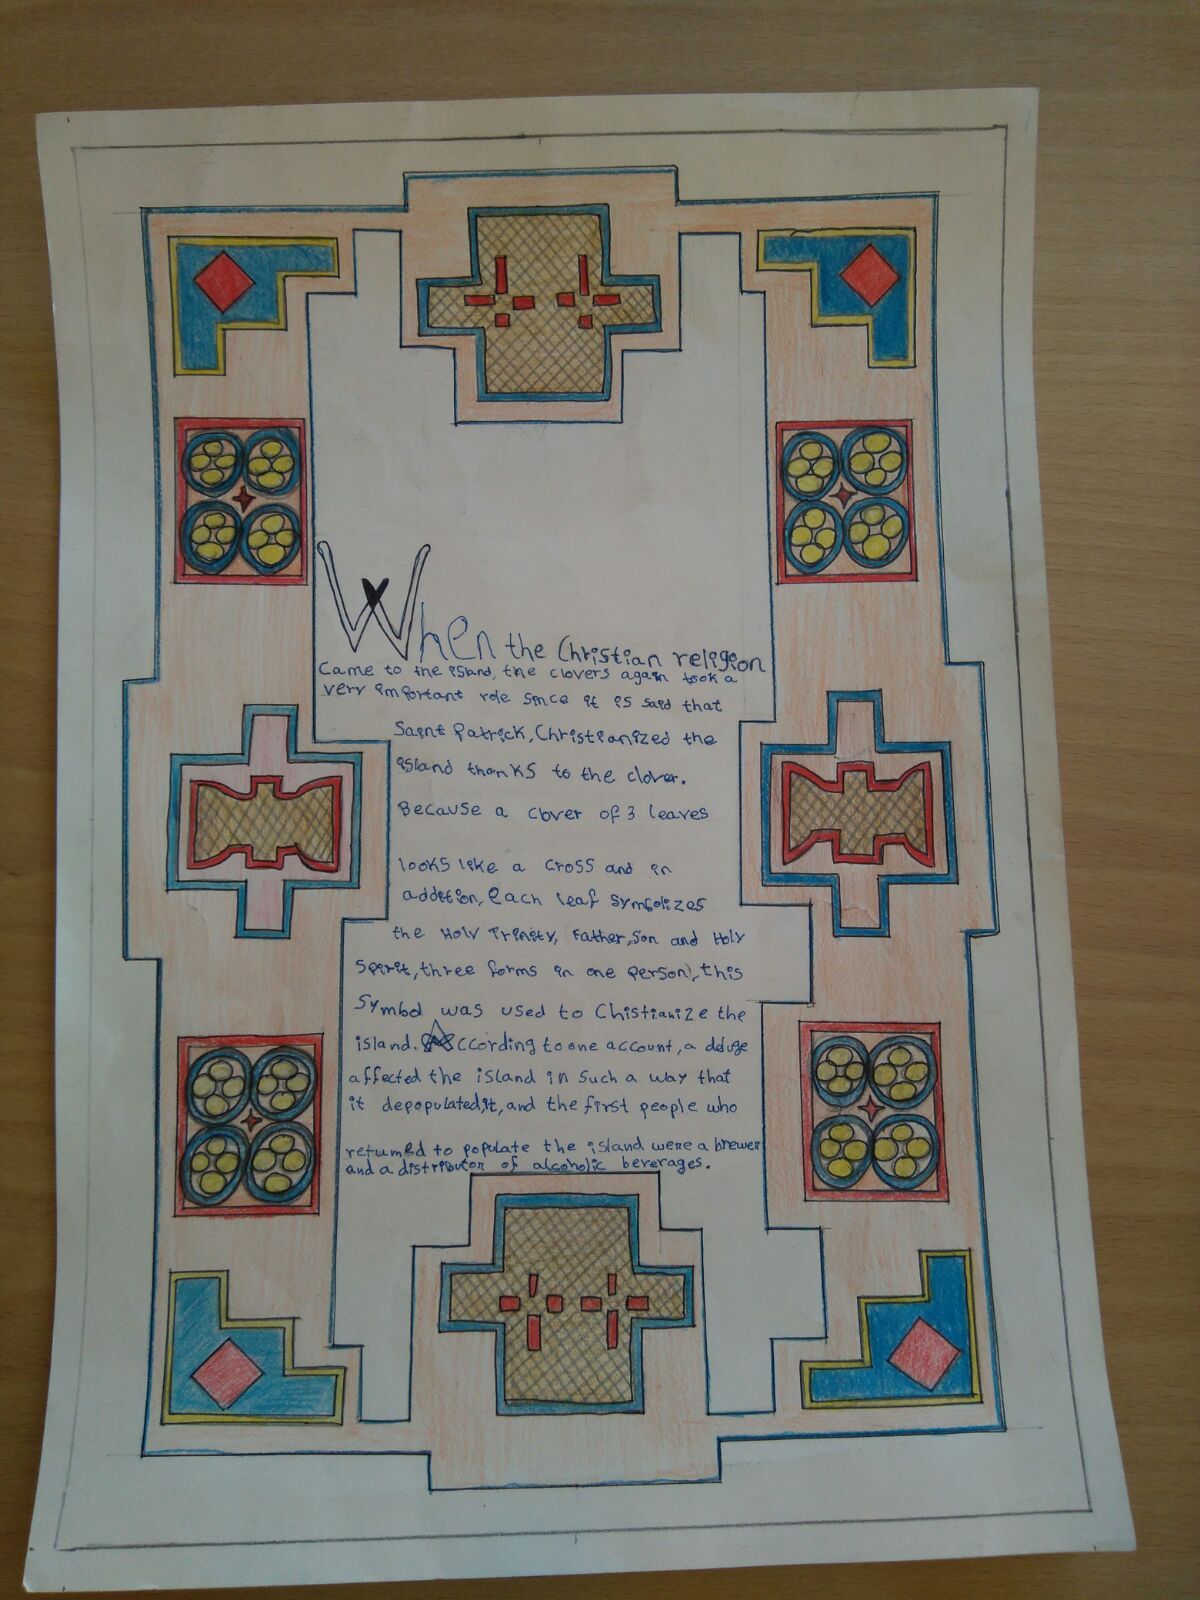 When the Christian religion
came to the island, the clovers again took a
very important role since it is said that
Saint Patrick, Christianized the
island thanks to the clover.
Because a clover of 3 leaves
looks like a cross and in
addition, each leaf symbolizes
the Holy Trinity, Father, Son and Holy
Spirit, three forms in one person), this
symbol was used to Chistianize the
island. According to one account, a deluge
affected the island in such a way that
it depopulated, it, and the first people who
returned to populate the island were a brewer
and a distributor of alcoholic beverages.